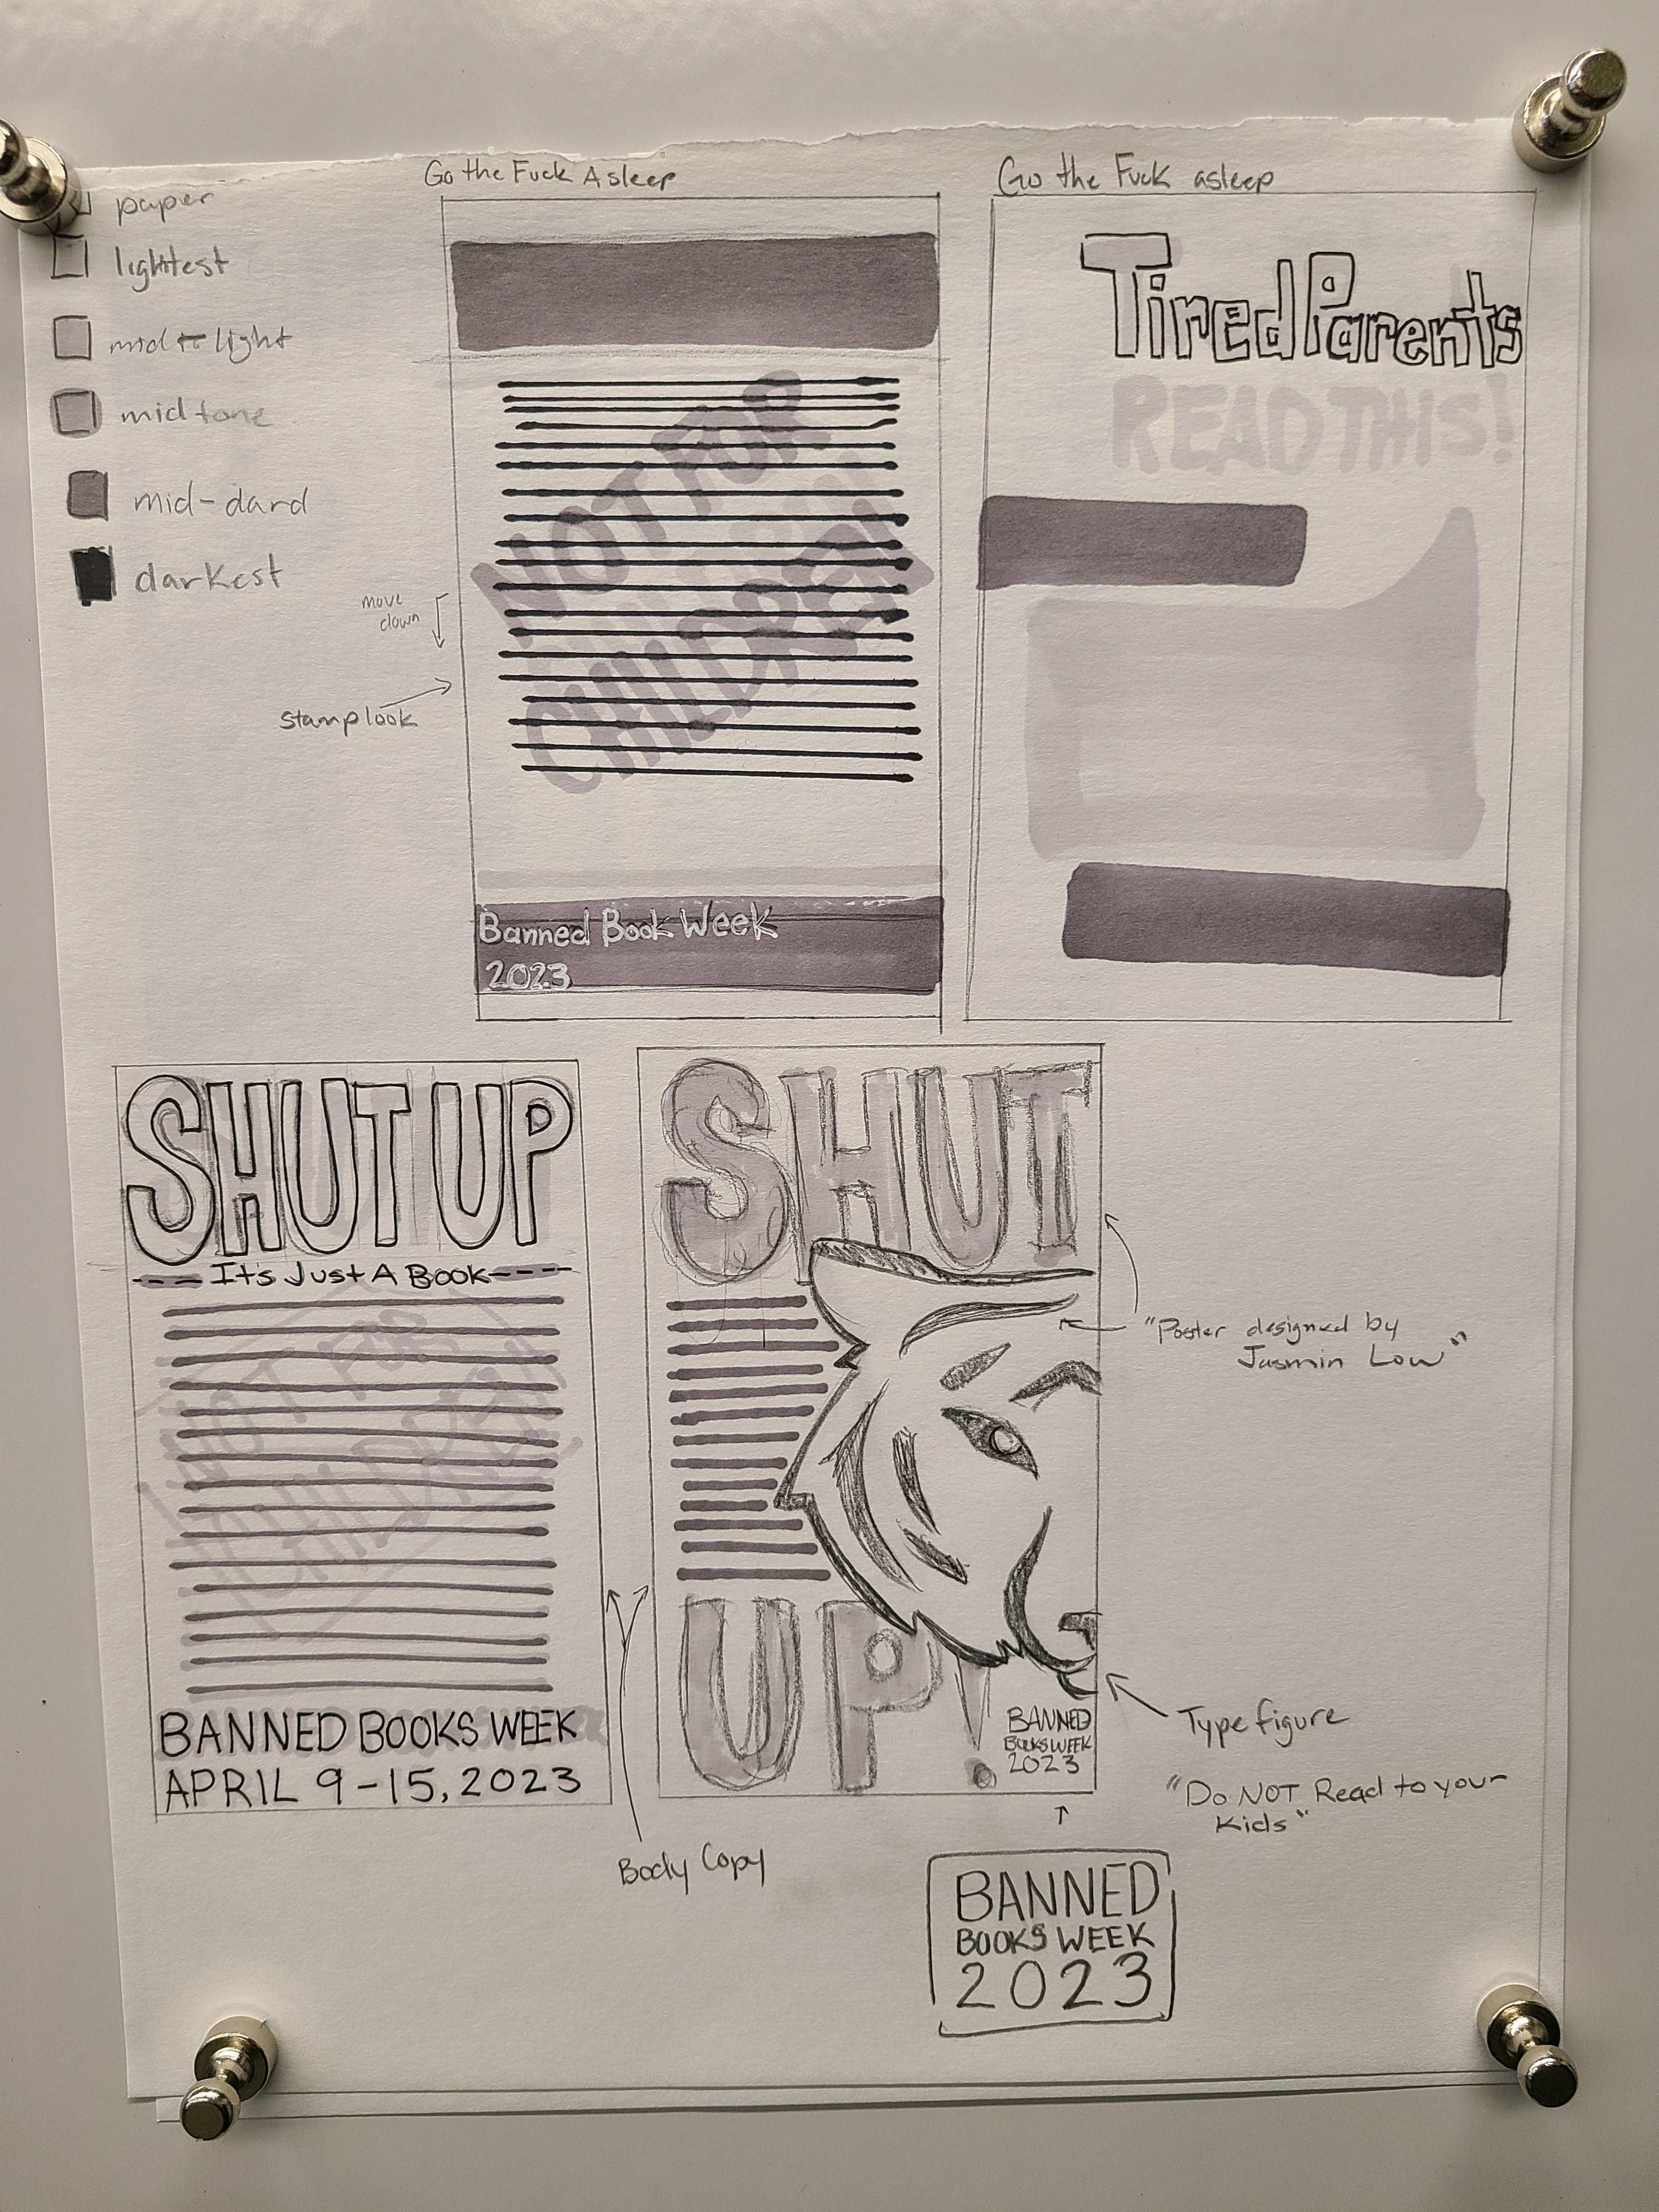 paper
lightest
mid-light
mid tone
mid-dard
darkest
Go the Fuck Asleep
NOT FOR
CHILDREN
move
down
stamp look
Banned Book Week
2023
Go the Fuck asleep
Tired Parents
READ THIS!
SHUT UP
---It's Just A Book----
NOT FOR
CHILDREN
BANNED BOOKS WEEK
APRIL 9-15, 2023
Body Copy
SHUT
UP!
BANNED
BOOKS WEEK
2023
"Poster designed by
Jasmin Low"
Type figure
"Do NOT Read to your
Kids"
BANNED
BOOKS WEEK
2023